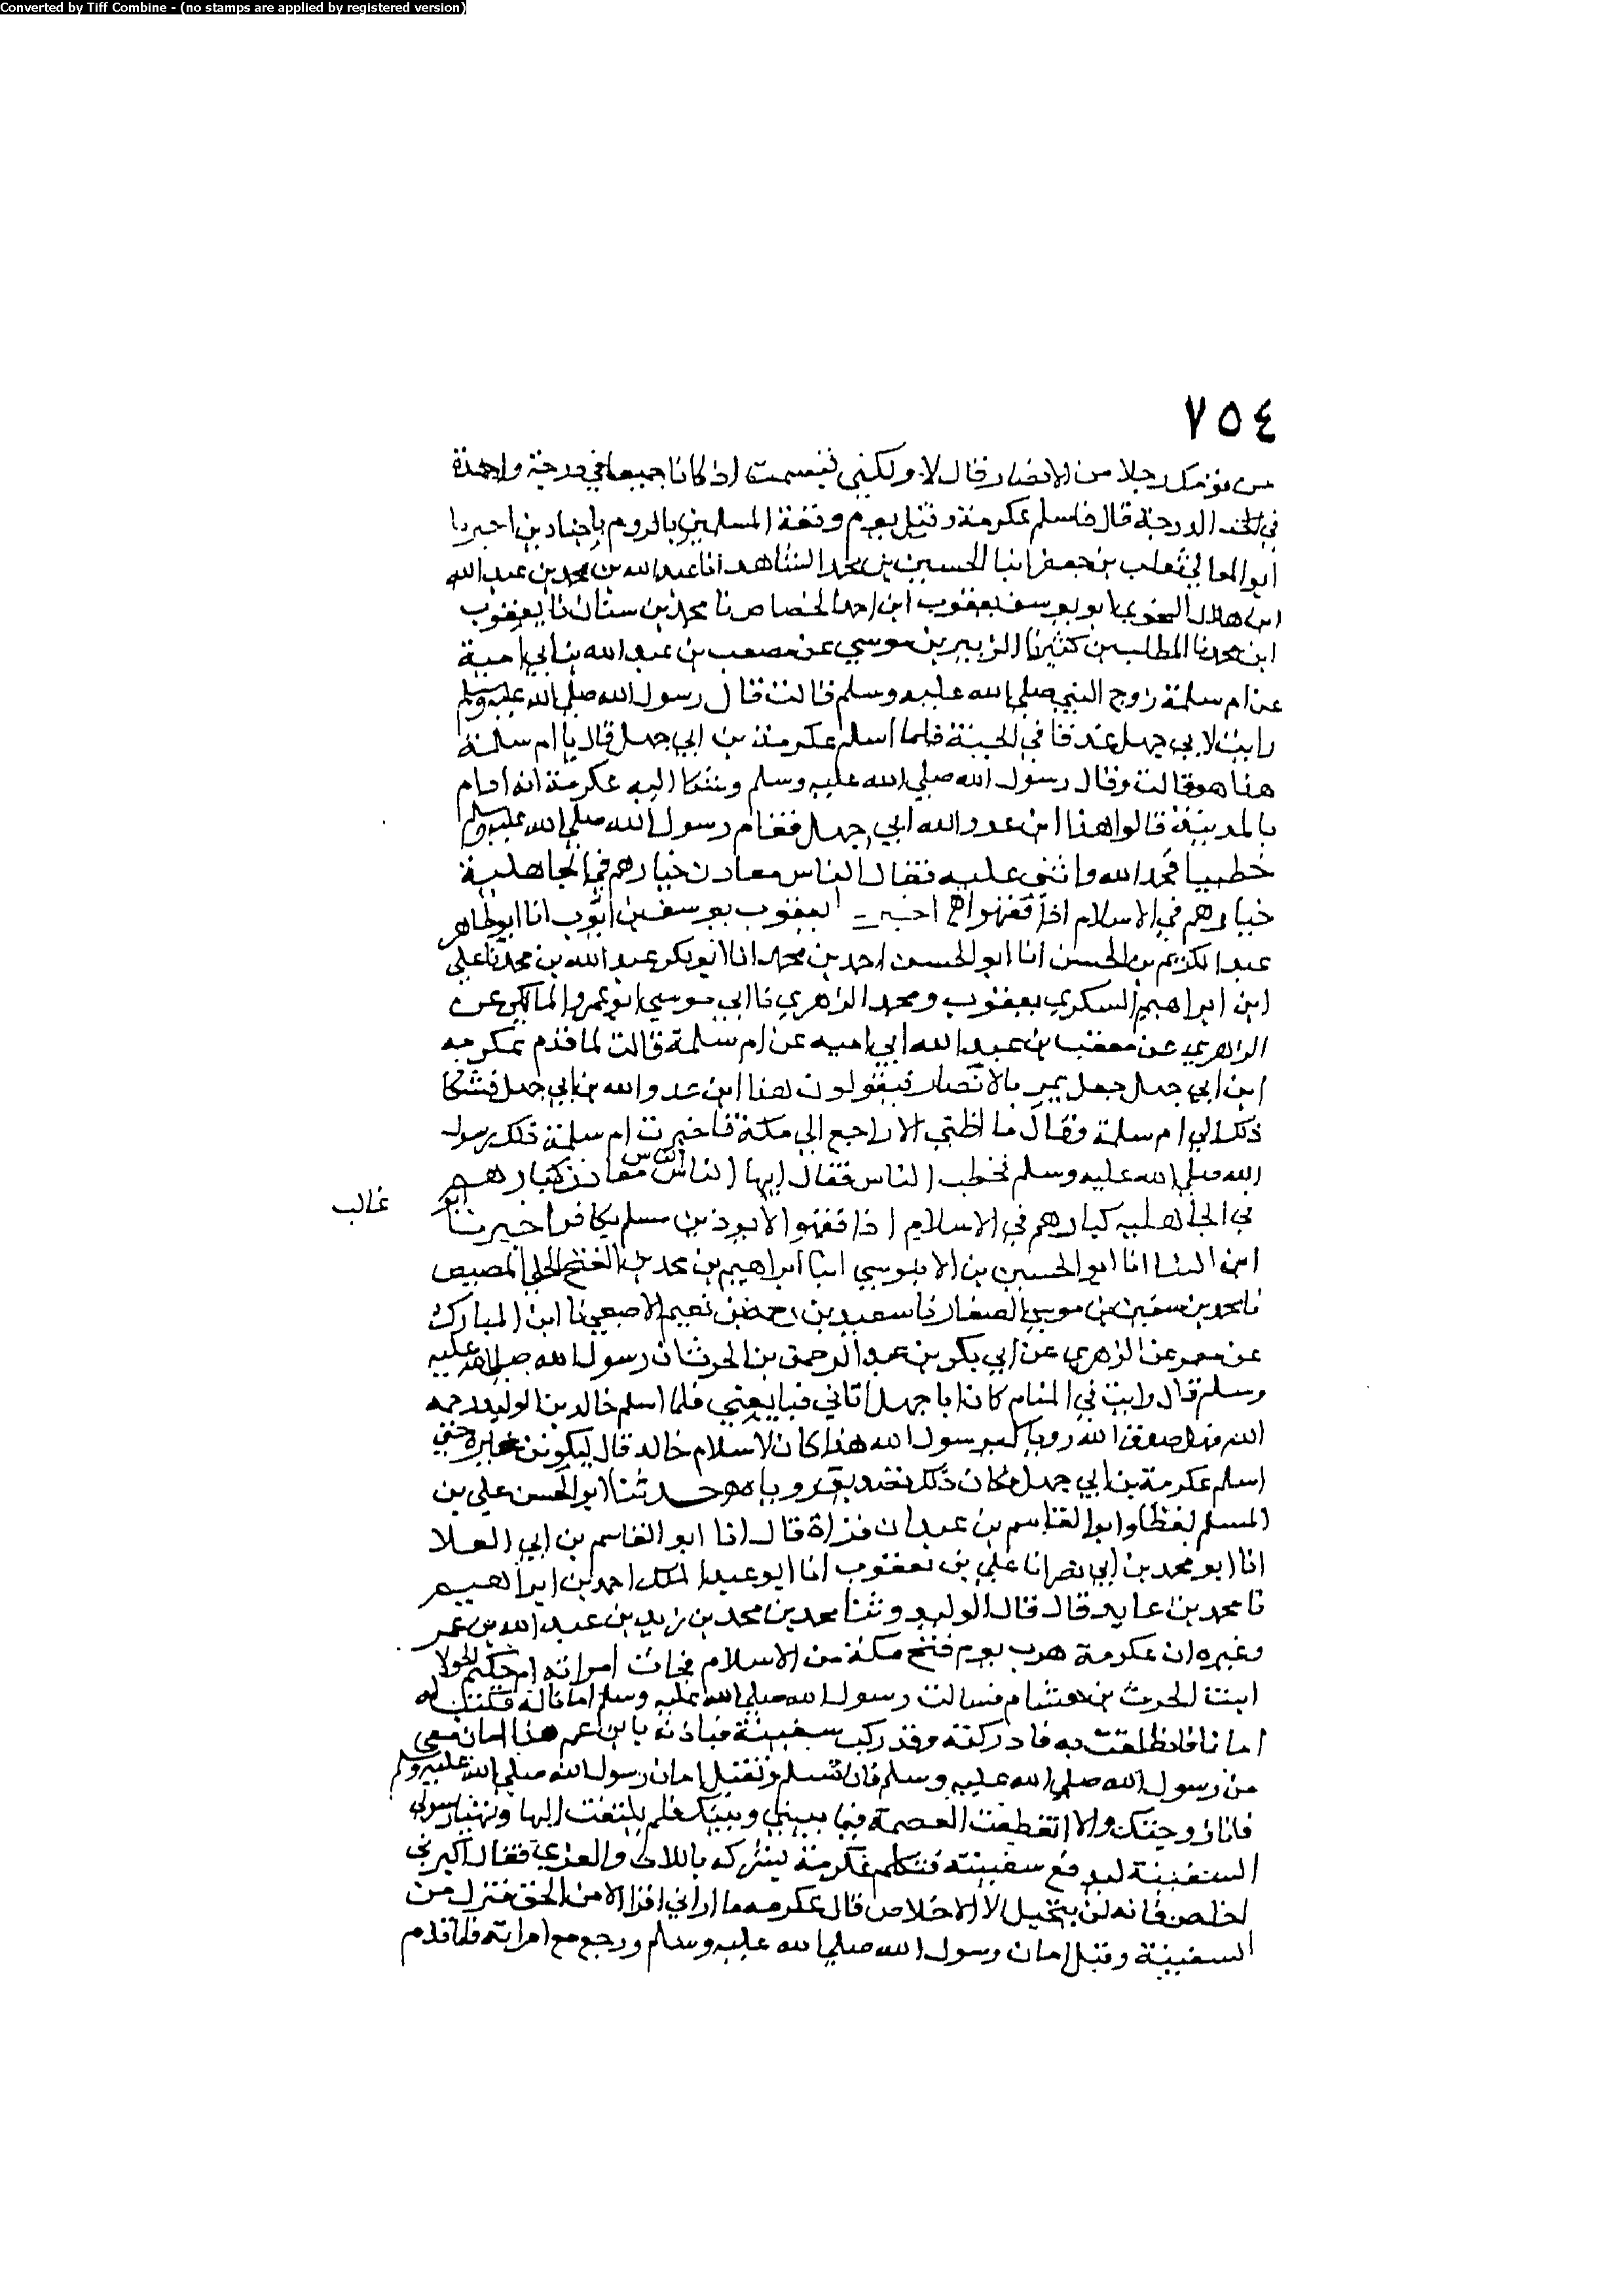 Converted by Tiff Combine - (no stamps are applied by registered version)
٧٥٤
من قومك رجلا من الانصار قال لا ولكني تبسمت اذ كانا جميعا في درجة واحدة
في الجنة الدرجة قال فاسلم عكرمة وقتل يوم وقعة المسلمين بالروم باجنادين اخبرنا
ابو المعالي ثعلب بن جعفر انبا الحسين بن محمد الشاهد انا عبد الله بن محمد بن عبد الله
ابن هلال النحوي نا ابو يوسف يعقوب ابن احمد الخصاص نا محمد بن سنان نا يعقوب
ابن محمد نا المطلب بن كثير نا الزبير بن موسي عن مصعب بن عبد الله بن ابي امية
عن ام سلمة زوج النبي صلي الله عليه وسلم قالت قال رسول الله صلي الله عليه وسلم
رايت لابي جهل عذقا في الجنة فلما اسلم عكرمة بن ابي جهل قال يا ام سلمة
هذا هو قالت وقال رسول الله صلي الله عليه وسلم وشكا اليه عكرمة انه اذا مر
بالمدينة قالوا هذا ابن عدو الله ابي جهل فقام رسول الله صلي الله عليه وسلم
خطيبا فحمد الله واثني عليه فقال الناس معادن خيارهم في الجاهلية
خيارهم في الاسلام اذا فقهوا اخبرنا ابو يعقوب يوسف بن ايوب انا ابو طاهر
عبد الكريم بن الحسن انا ابو الحسين احمد بن محمد انا ابو بكر عبد الله بن محمد نا علي
ابن ابراهيم السكري يعقوب ومحمد الزهري نا ابي موسي ابو عمرو المالكي عن
الزهري عن مصعب بن عبد الله ابي اميه عن ام سلمة قالت لما قدم عكرمه
ابن ابي جهل جعل يمر بالانصار فيقولون هذا ابن عدو الله بن ابي جهل فشكا
ذلك الي ام سلمة وقال ما اظنني الا راجع الي مكة فاخبرت ام سلمة ذلك رسول
الله صلي الله عليه وسلم فخطب الناس فقال ايها الناس الناس معادن خيارهم
في الجاهليه خيارهم في الاسلام اذا فقهوا لا يوذين مسلم بكافر اخبرنا ابو غالب
ابن البنا انا ابو الحسين بن الابنوسي انبا ابراهيم بن محمد بن الفتح الجلي المصيصي
نا محمد بن سفين بن موسي الصفار نا سعيد بن رحمة بن نعيم الاصبحي نا ابن المبارك
عن معمر عن الزهري عن ابي بكر بن عبد الرحمن بن الحرث ان رسول الله صلي الله عليه
وسلم قال رايت في المنام كان ابا جهل اتاني فبايعني فلما اسلم خالد بن الوليد رحمه
الله قيل صدق الله روياك يرسول الله هذا كان لاسلام خالد قال ليكونن غيره حتي
اسلم عكرمة بن ابي جهل فكان ذلك تصديق روياه حدثنا ابو الحسن علي بن
المسلم لفظا وابو القاسم بن عبدان قراة قال انا ابو القاسم بن ابي العلا
انا ابو محمد بن ابي نصر انا علي بن يعقوب انا ابو عبد الملك احمد بن ابراهيم
نا محمد بن عايد قال قال الوليد وثنا محمد بن محمد بن زيد بن عبد الله بن عمر
وغيره ان عكرمة هرب يوم فتح مكة من الاسلام فجات امراته ام حكيم
ابنت الحرث بن هشام فسالت رسول الله صلي الله عليه وسلم امانا له فكتب له
امانا فانطلقت به فادركته وقد ركب سفينة فنادته يا بن عم هذا امان معي
من رسول الله صلي الله عليه وسلم فان تسلم وتقبل امان رسول الله صلي الله عليه وسلم
فانا زوجتك والا انقطعت العصمة فيما بيني وبينك فلم يلتفت اليها
السفينة ليدفع سفينته فتكلم عكرمة يشركه باللات والعزي فقال
اخلص فانه لن ينجيك الا الاخلاص قال عكرمه ما اراني افر الا من الحق فنزل من
السفينة وقبل امان رسول الله صلي الله عليه وسلم ورجع مع امراته فلما قدم